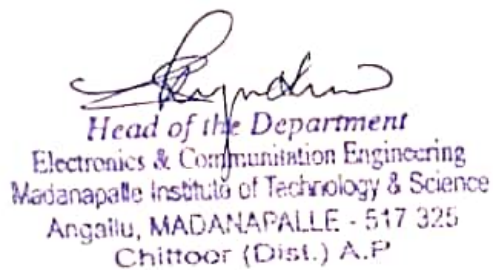 Head of the Department
Electronics & Communitation Engineering
Madanapalle Institute of Technology & Science
Angallu, MADANAPALLE - 517 325
Chittoor (Dist.) A.P